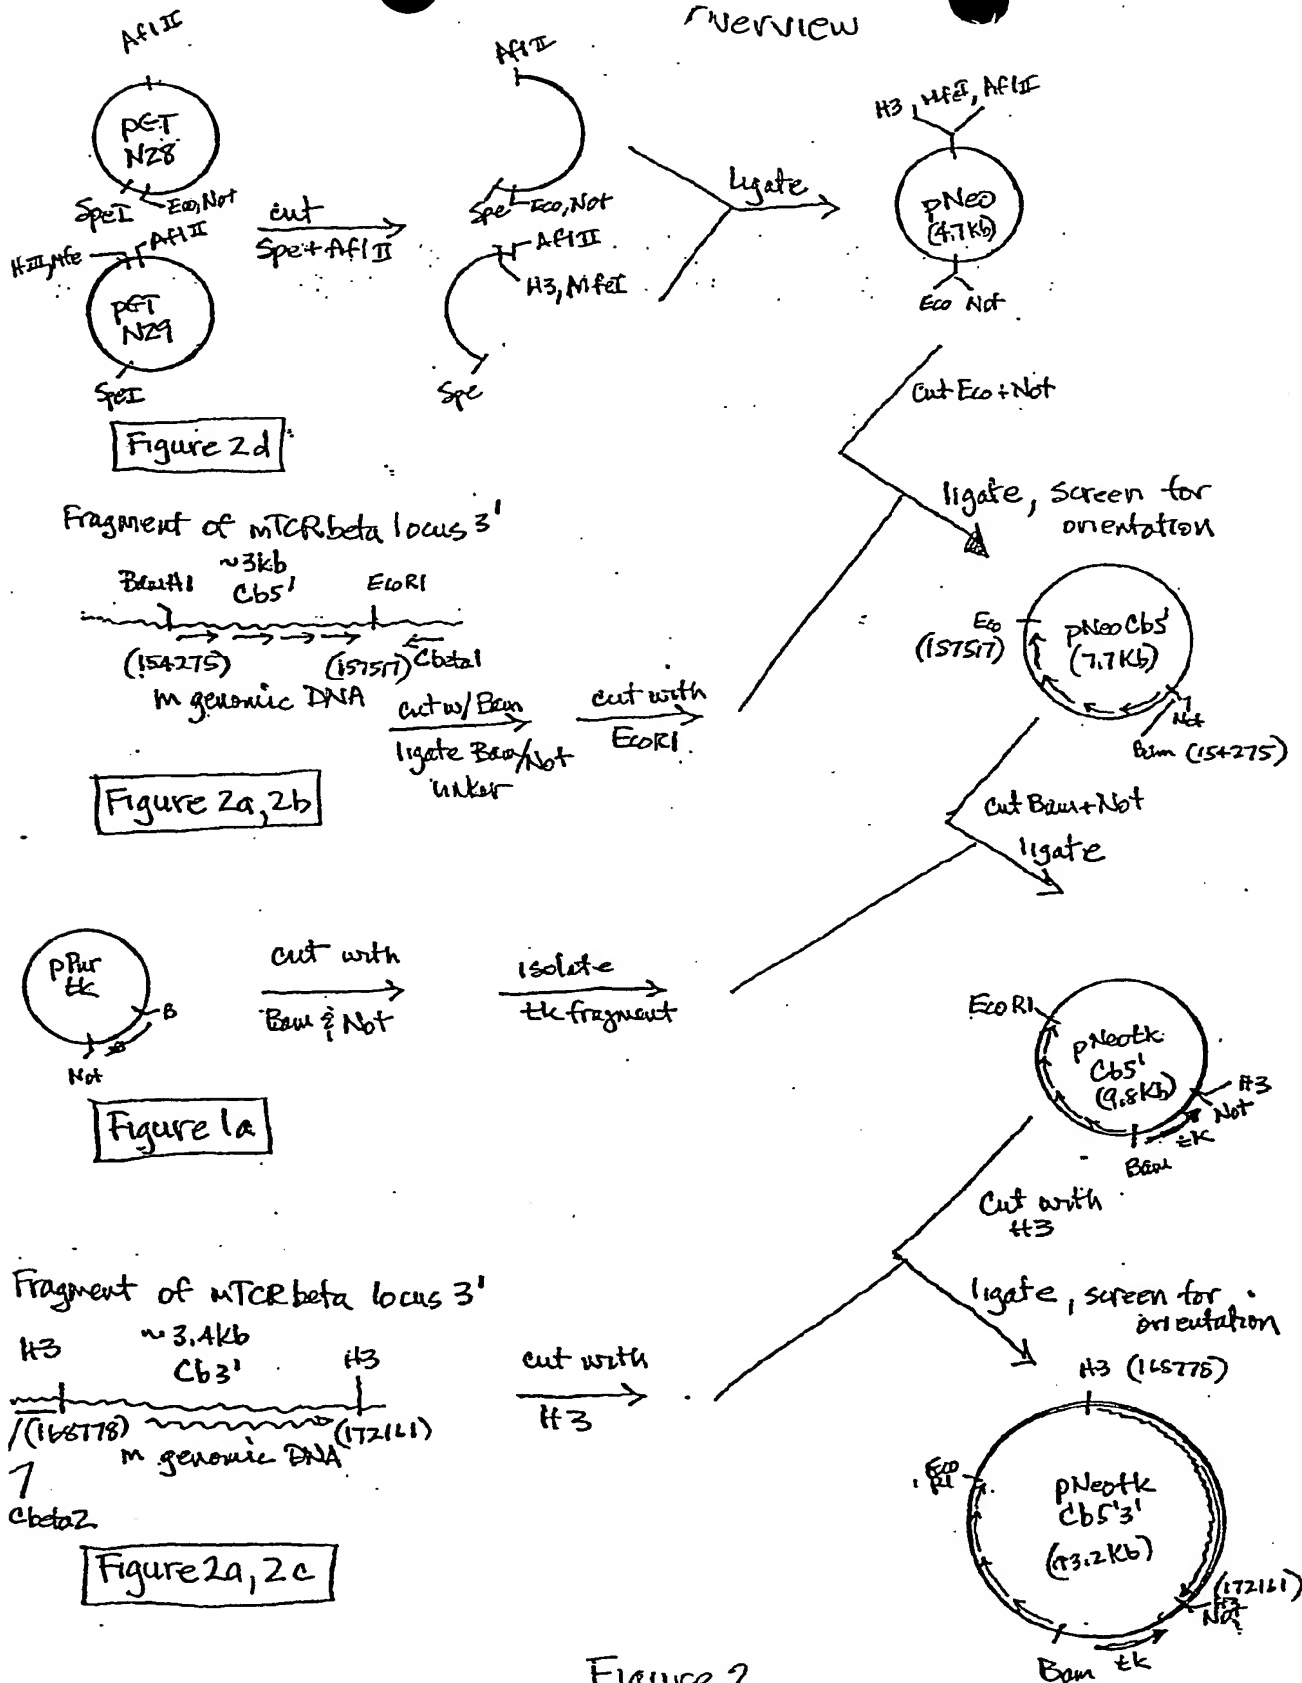 Overview
AflII
pET
N28
SpeI
Eco, Not
HIII, Mfe
AflII
pET
N29
SpeI
cut
Spe + AflII
AflII
Spe
Eco, Not
AflII
H3, MfeI
Spe
ligate
H3, MfeI, AflII
pNeo
(4.7Kb)
Eco Not
Figure 2d
cut Eco + Not
ligate, screen for
orientation
Fragment of mTCRbeta locus 3'
~3kb
BamH1
Cb5'
EcoR1
(154275)
(157517)
Cbeta1
m genomic DNA
cut w/ Bam
ligate Bam/Not
linker
cut with
EcoR1
Figure 2a, 2b
Eco
(157517)
pNeoCb5'
(7.7Kb)
Not
Bam (154275)
cut Bam + Not
ligate
pPur
tk
B
Not
cut with
Bam & Not
isolate
tk fragment
Figure 1a
EcoR1
pNeotk
Cb5'
(9.8Kb)
H3
Not
tk
Bam
cut with
H3
ligate, screen for
orientation
Fragment of mTCRbeta locus 3'
~3.4kb
H3
Cb3'
H3
(168778)
(172161)
m genomic DNA
Cbeta2
cut with
H3
Figure 2a, 2c
H3 (168778)
Eco
R1
pNeotk
Cb5'3'
(13.2Kb)
(172161)
H3
Not
Bam
tk
Figure 2